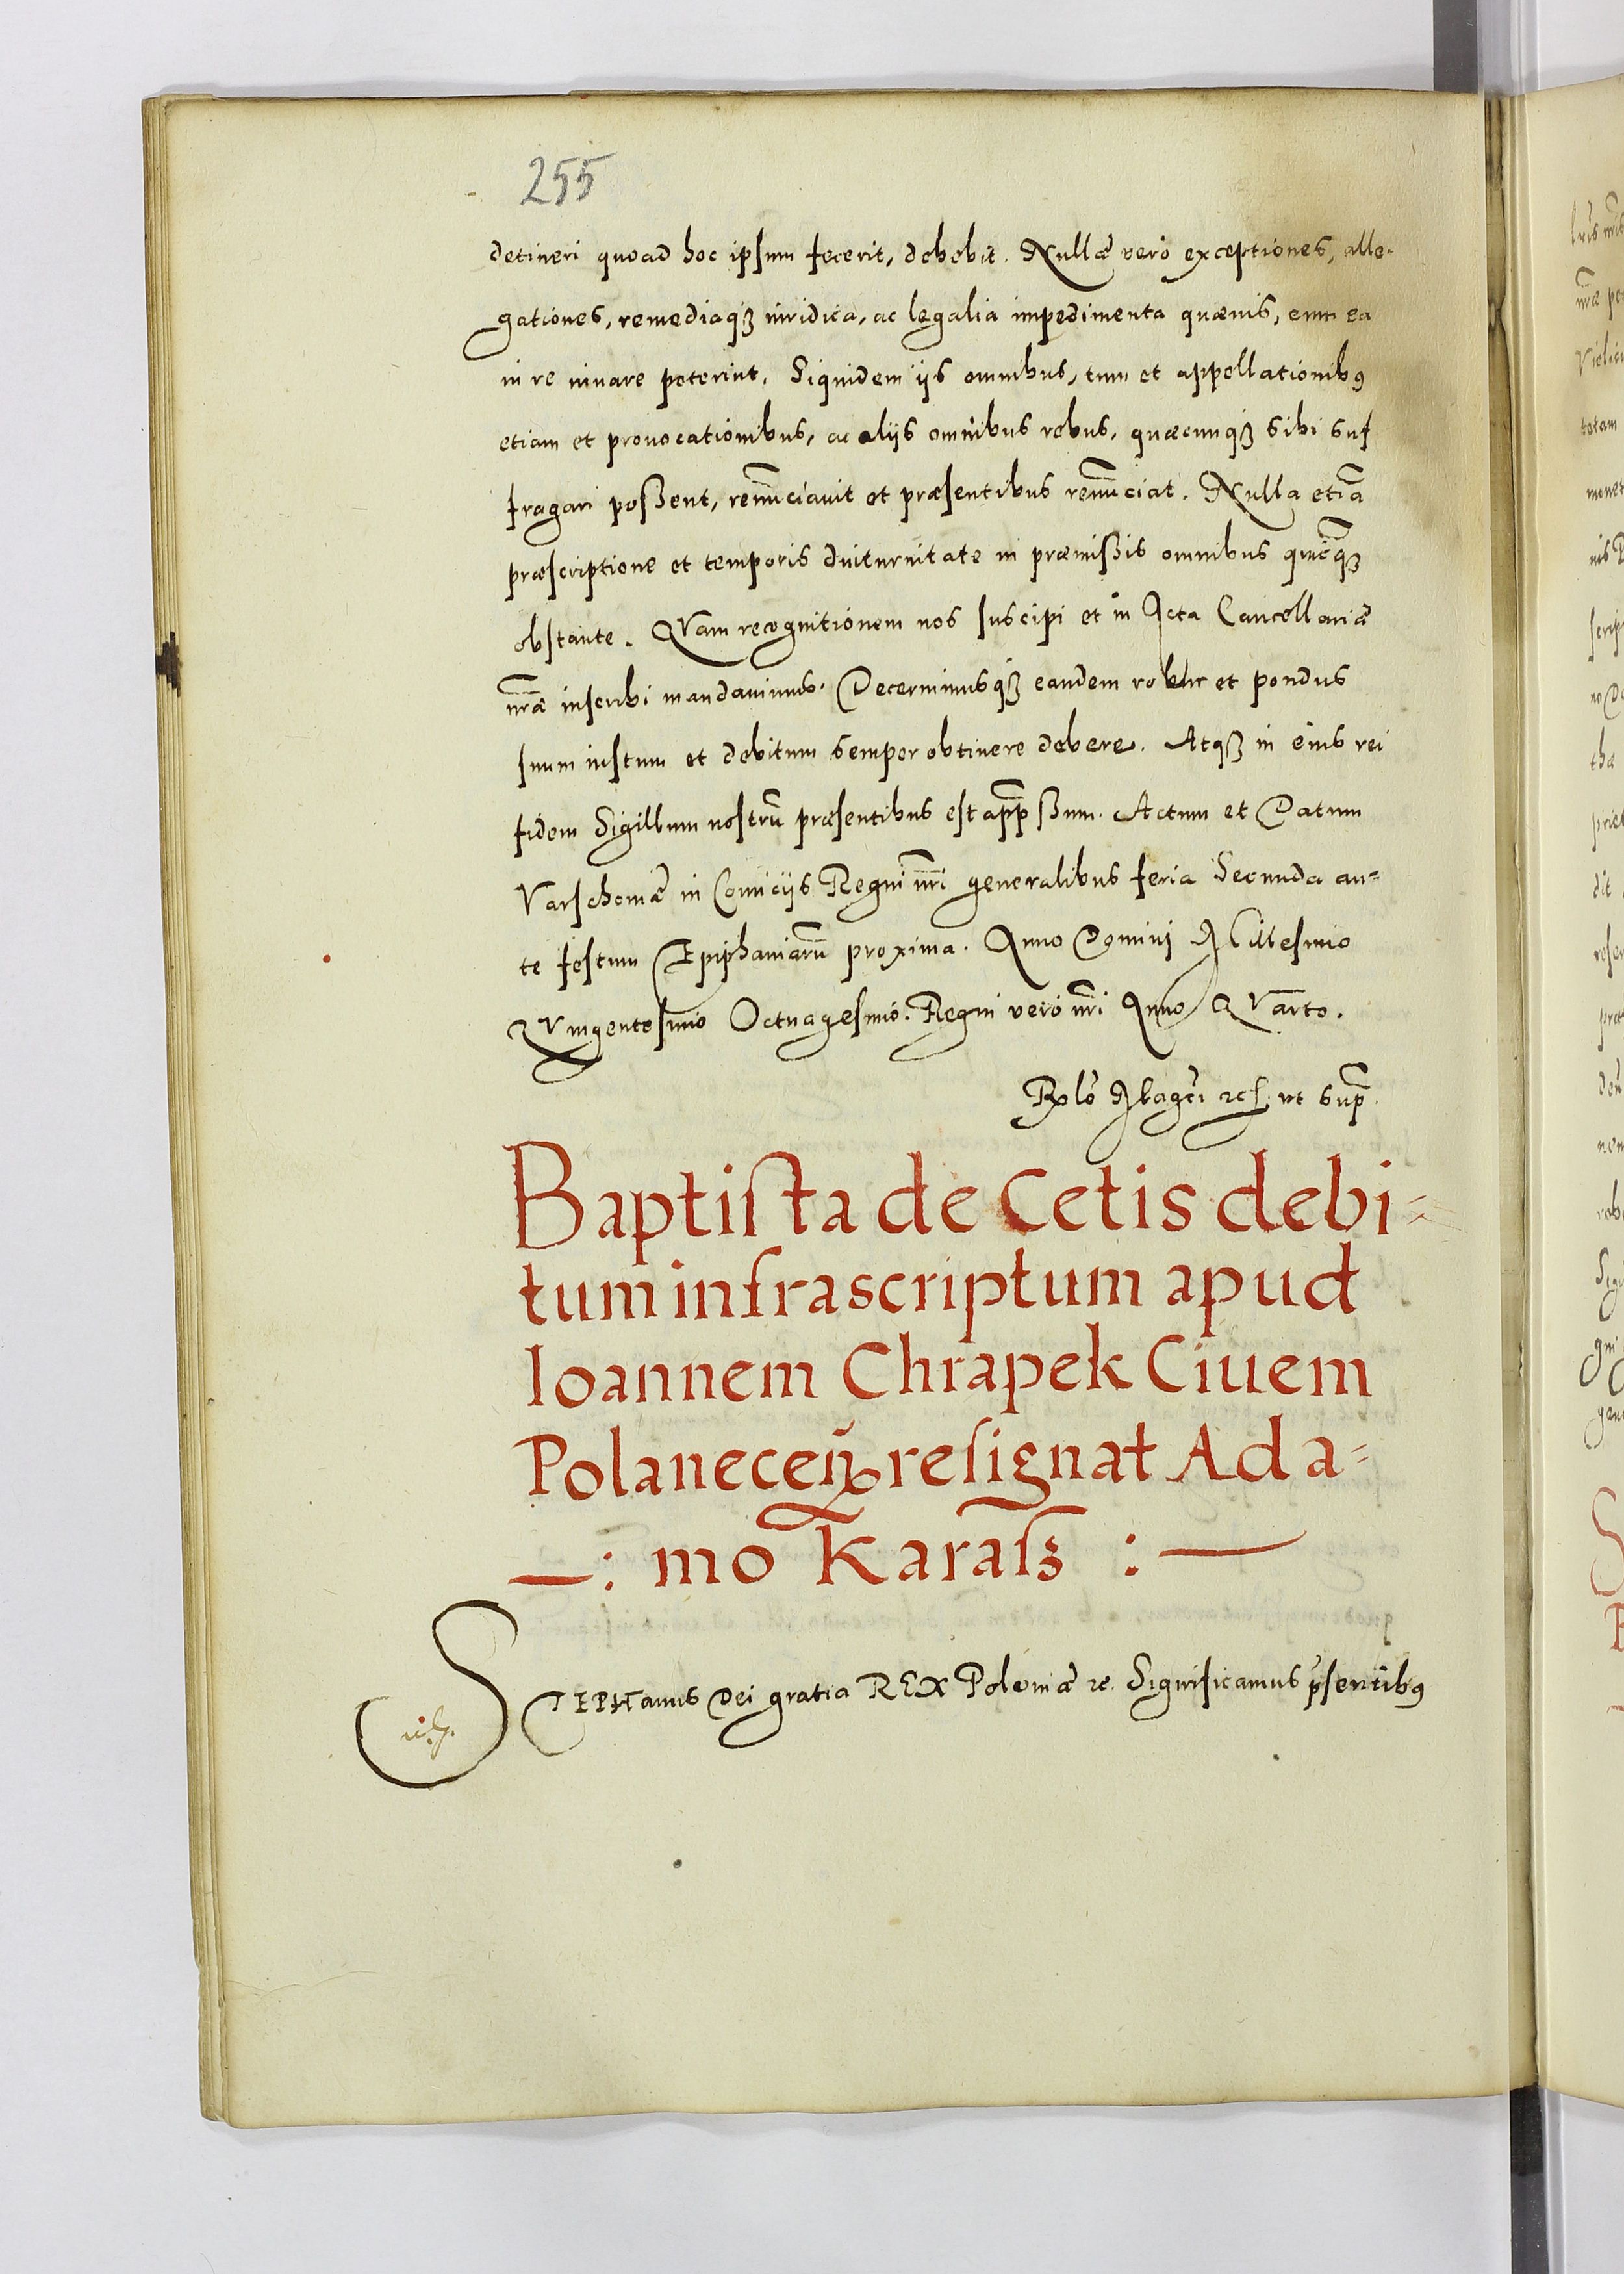 255
detineri quoad hoc ipsum fecerit, debebit. Nullæ verò exceptiones, alle-
gationes, remediaq3 iuridica, ac legalia impedimenta quæuis, eum ea
in re iuuare poterint. Siquidem ijs omnibus, tum et appellationibꝰ
etiam et prouocationibus, ac alijs omnibus rebus, quæcunq3 sibi suf
fragari possent, renũciauit et præsentibus renũciat. Nulla etiã
præscriptione et temporis diuturnitate in præmissis omnibus quicq̃3
obstante. QVam recognitionem nos suscipi et in Acta Cancellariæ
nr̃æ inscribi mandauimus. Decernimusq3 eandem robur et pondus
suum iustum et debitum semper obtinere debere. Atq3 in eius rei
fidem Sigillum nostrũ præsentibus est app̃ssum. Actum et Datum
Varschouiæ in Comicijs Regni nr̃i generalibus feria Secunda an=
te festum Epiphaniarũ proxima. Anno Domini Millesimo
QVingentesimo Octuagesimo. Regni verò nr̃i Anno QVarto.
Relõ Magci ut sup̃
Baptista de Cetis debi=
tum infrascriptum apud
Ioannem Chrapek Ciuem
Polaneceñ resignat Ada=
—: mo Karasz :—
STEPHanus Dei gratia REX Poloniæ etc. Significamus p̃sentibꝰ